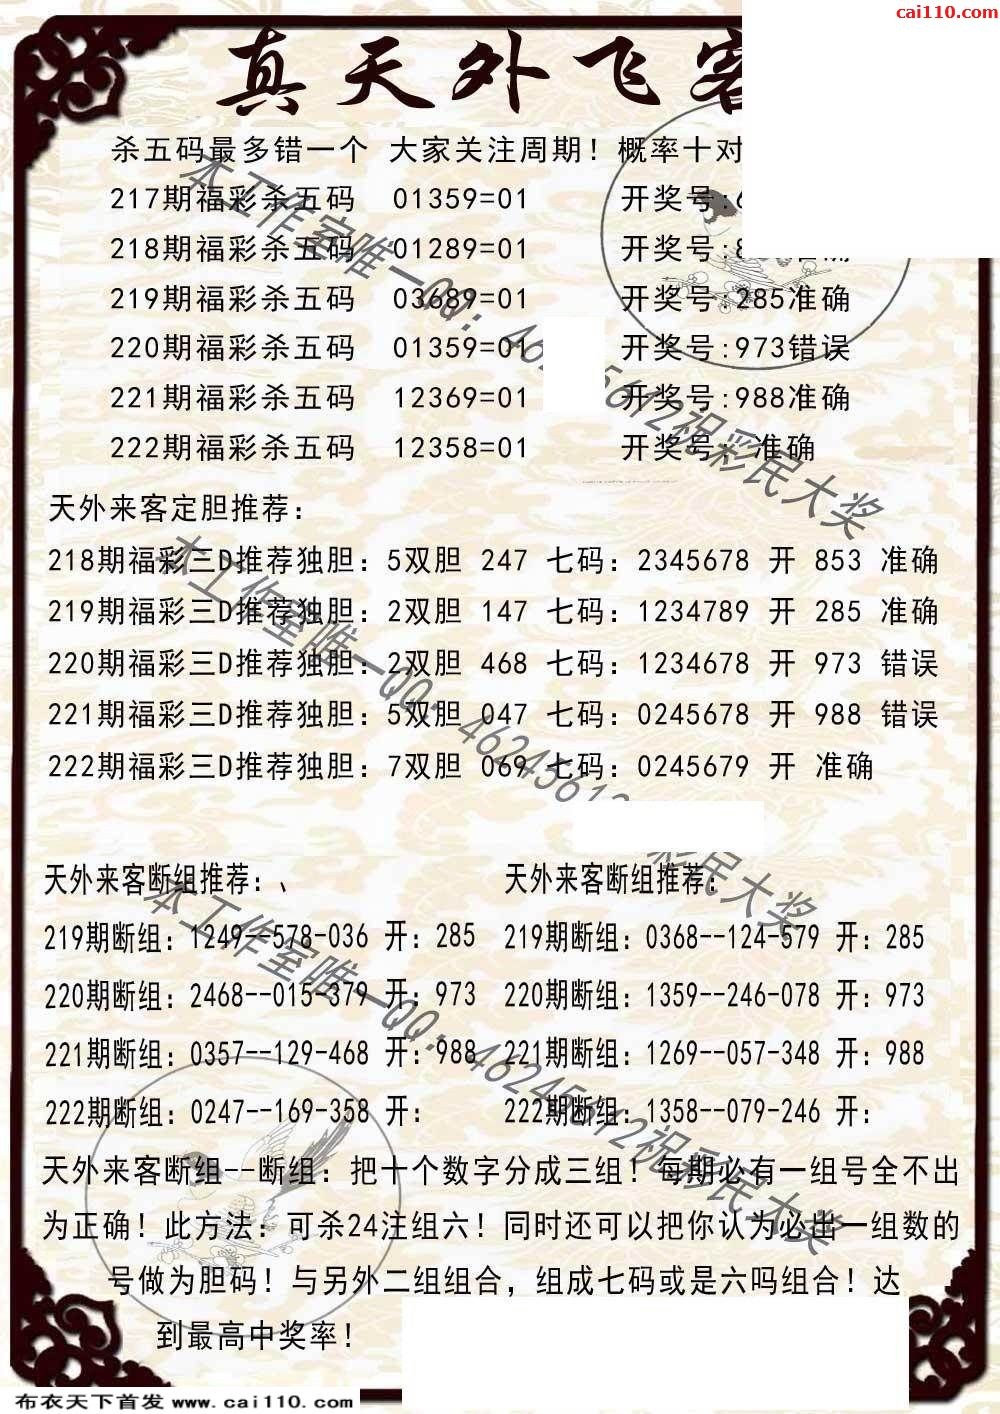 cai110.com
真天外飞客
杀五码最多错一个 大家关注周期！概率十对
217期福彩杀五码 01359=01 开奖号:6
218期福彩杀五码 01289=01 开奖号:8 准确
219期福彩杀五码 03689=01 开奖号:285准确
220期福彩杀五码 01359=01 开奖号:973错误
221期福彩杀五码 12369=01 开奖号:988准确
222期福彩杀五码 12358=01 开奖号: 准确
天外来客定胆推荐：
218期福彩三D推荐独胆：5双胆 247 七码：2345678 开 853 准确
219期福彩三D推荐独胆：2双胆 147 七码：1234789 开 285 准确
220期福彩三D推荐独胆：2双胆 468 七码：1234678 开 973 错误
221期福彩三D推荐独胆：5双胆 047 七码：0245678 开 988 错误
222期福彩三D推荐独胆：7双胆 069 七码：0245679 开 准确
天外来客断组推荐：、 天外来客断组推荐：
219期断组：1249--578-036 开：285 219期断组：0368--124-579 开：285
220期断组：2468--015-379 开：973 220期断组：1359--246-078 开：973
221期断组：0357--129-468 开：988 221期断组：1269--057-348 开：988
222期断组：0247--169-358 开： 222期断组：1358--079-246 开：
天外来客断组--断组：把十个数字分成三组！每期必有一组号全不出
为正确！此方法：可杀24注组六！同时还可以把你认为必出一组数的
号做为胆码！与另外二组组合，组成七码或是六吗组合！达
到最高中奖率！
布衣天下首发 www.cai110.com
本工作室唯一QQ：46245612祝彩民大奖
本工作室唯一QQ：46245612祝彩民大奖
本工作室唯一QQ：46245612祝彩民大奖